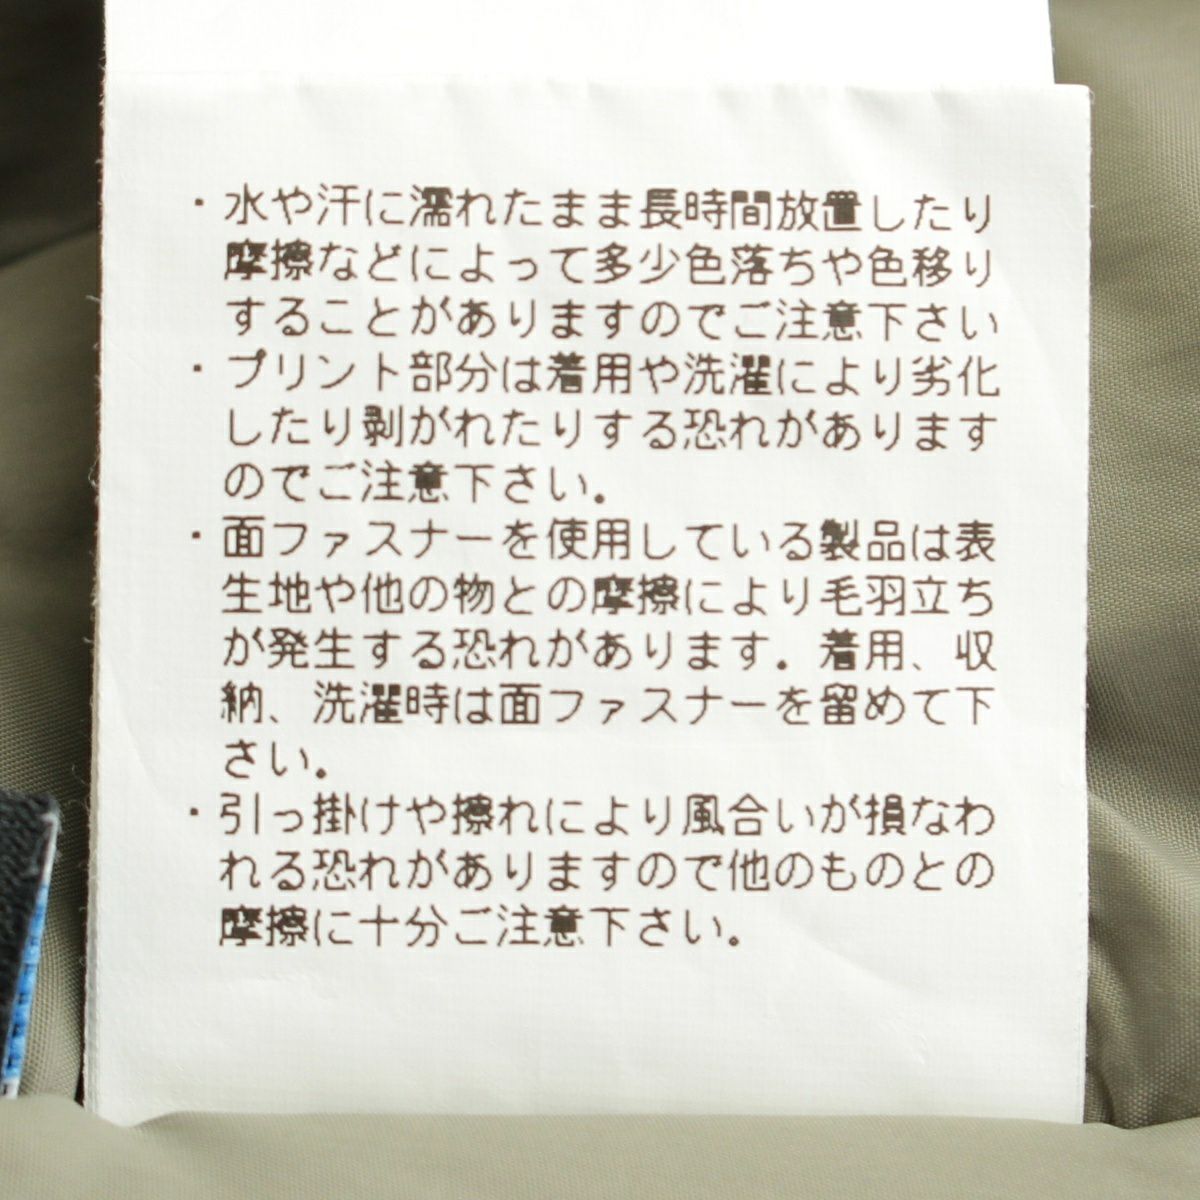 ・水や汗に濡れたまま長時間放置したり
摩擦などによって多少色落ちや色移り
することがありますのでご注意下さい
・プリント部分は着用や洗濯により劣化
したり剥がれたりする恐れがあります
のでご注意下さい。
・面ファスナーを使用している製品は表
生地や他の物との摩擦により毛羽立ち
が発生する恐れがあります。着用、収
納、洗濯時は面ファスナーを留めて下
さい。
・引っ掛けや擦れにより風合いが損なわ
れる恐れがありますので他のものとの
摩擦に十分ご注意下さい。